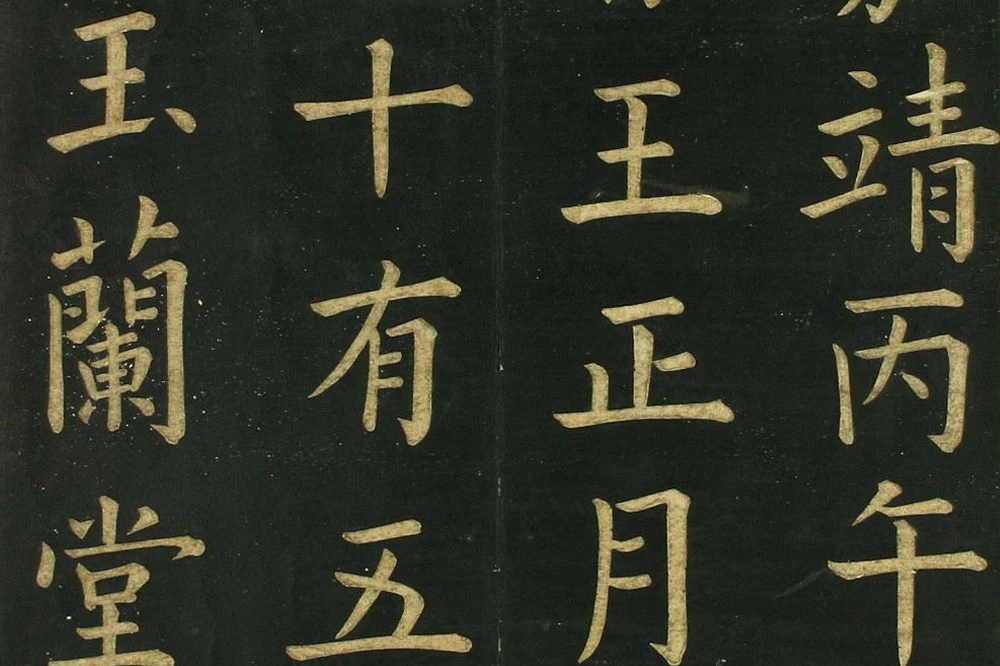 靖丙午
王正月
十有五
玉蘭堂